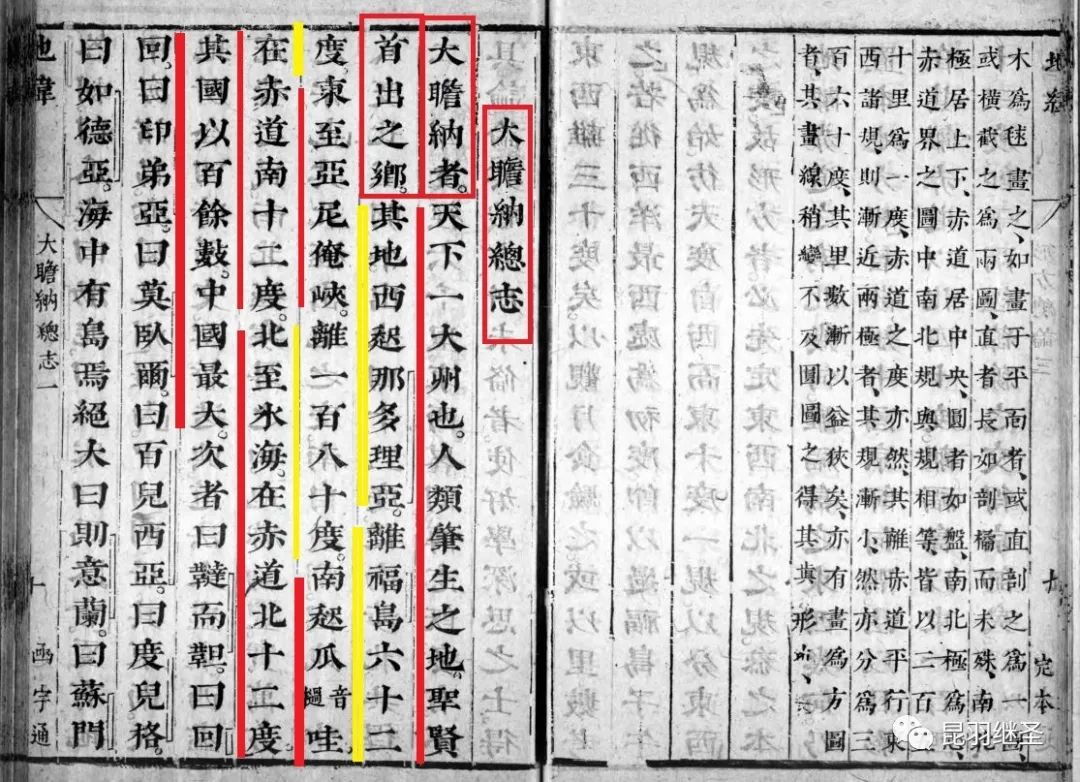 地緯 完本
木爲毬畫之、如畫于平面者、或直剖之爲一
或橫截之爲兩圖、直者長如剖橘而未殊、南
極居上下、赤道居中央、圓者如盤、南北極爲、
赤道界之圖中南北規與規相等、皆以二百
十里爲一度、赤道之度亦然、其離赤道平行東
西諸規、則漸近兩極者、其規漸小、然亦分爲三
百六十度、其里數漸以益狹矣、亦有畫爲方圖
者、其畫線稍變不及圓圖之得其眞形
大瞻納總志
大瞻納者。天下一大州也。人類肇生之地。聖賢
首出之鄉。其地西起那多理亞。離福島六十二
度。東至亞尼俺峽。離一百八十度。南起瓜音檛哇
在赤道南十二度。北至氷海。在赤道北十二度
其國以百餘數。中國最大。次者曰韃而靼。曰回
回。曰印弟亞。曰莫臥爾。曰百兒西亞。曰度兒格。
曰如德亞。海中有島焉絕大曰則意蘭。曰蘇門
地緯 大瞻納總志一 十 函宇通
昆羽继圣